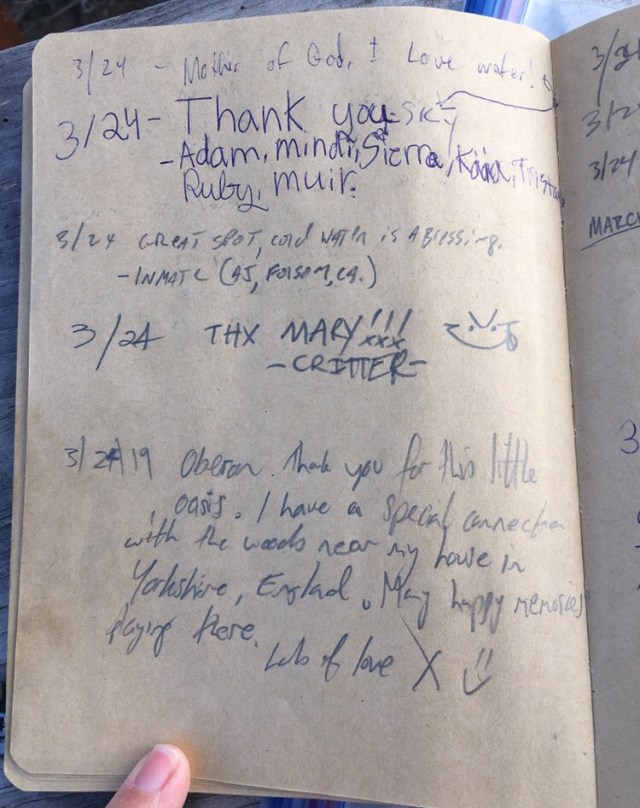 3/24 - Mother of God, I Love water!
3/24 - Thank you - SKY
- Adam, mindi, Sierra, Kaia, Tristan,
Ruby, muir.
3/24 GREAT SPOT, COLD WATER is A BLessing.
- INMATE (AJ, FOLSOM, CA.)
3/24 THX MARY!!! xxx
- CRITTER -
3/24/19 Oberon. Thank you for this little
oasis. I have a special connection
with the woods near my house in
Yorkshire, England. Many happy memories
playing there.
Lots of love X
3/2
3/2
3/24
MARC
3